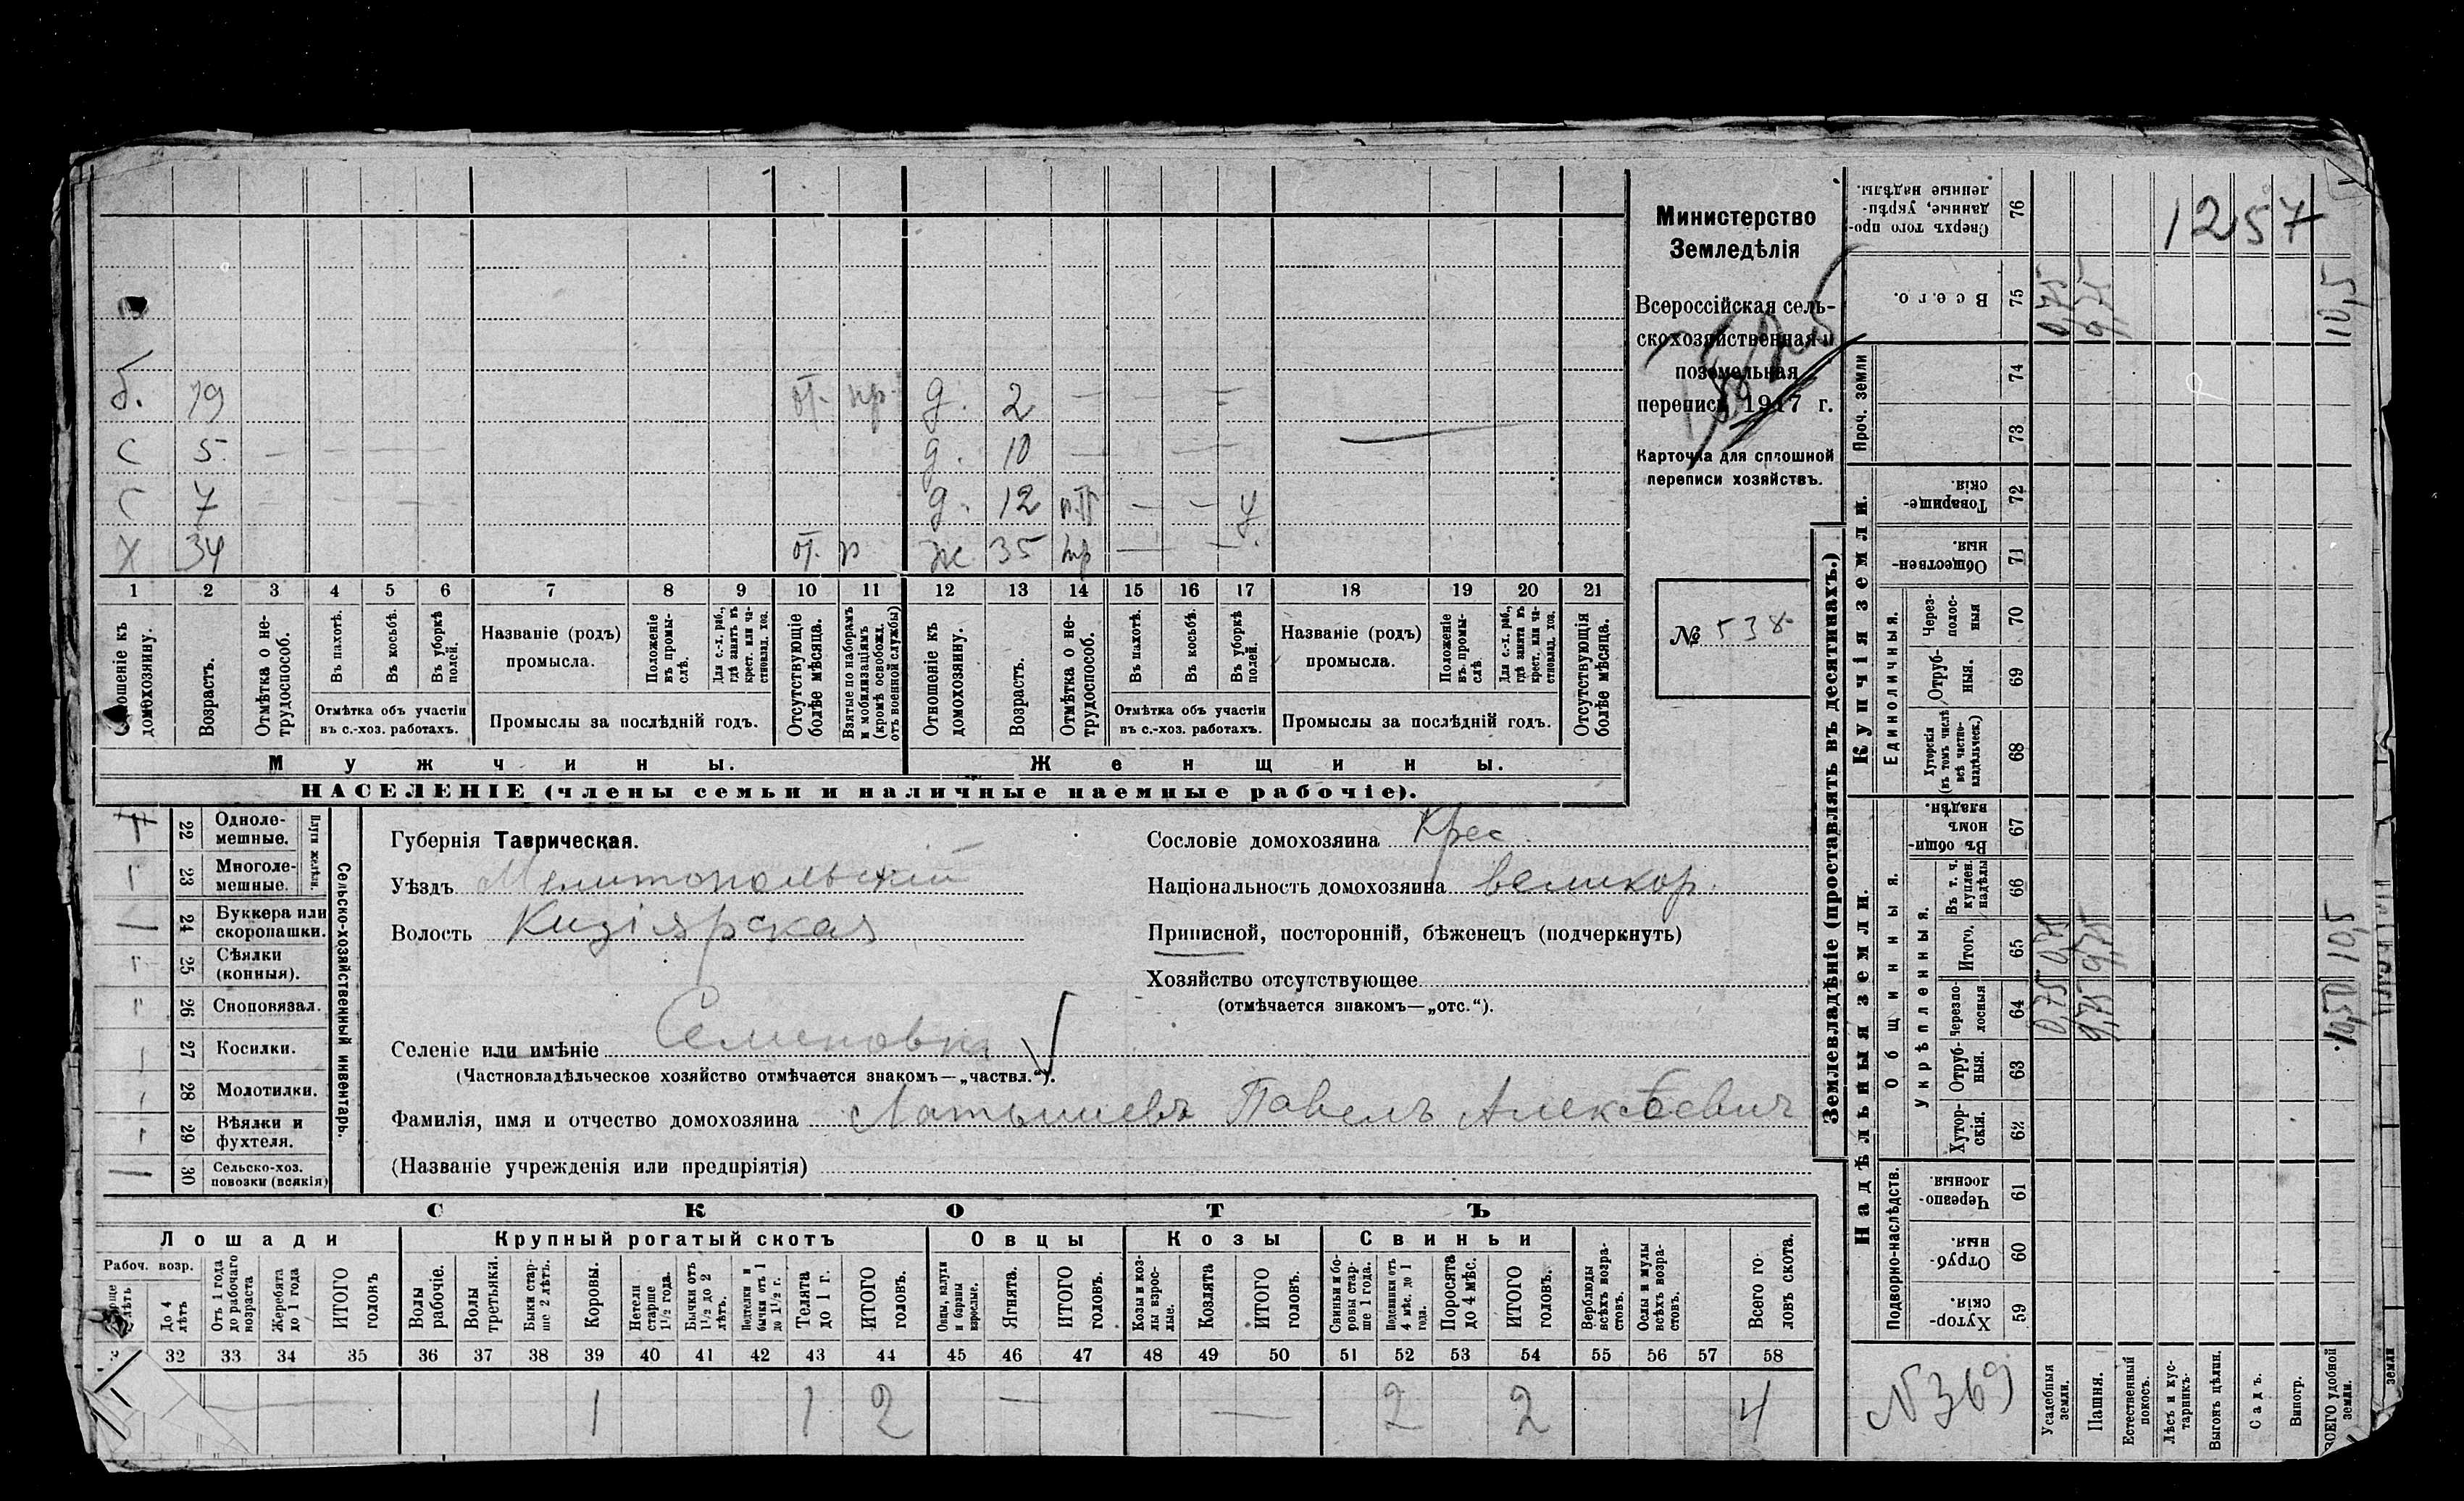 Министерство
Земледѣлія
Всероссійская сель-
скохозяйственная и
поземельная
перепись 1917 г.
Карточка для сплошной
переписи хозяйствъ.
№ 538
б. 19 от. пр. д. 2
с 5 д. 10
с 7 д. 12 у
х 34 от. ж 35
1 2 3 4 5 6 7 8 9 10 11 12 13 14 15 16 17 18 19 20 21
Отношеніе къ домохозяину.
Возрастъ.
Отмѣтка о не-трудоспособ.
Въ пахотѣ.
Въ косьбѣ.
Въ уборкѣ полей.
Отмѣтка объ участіи
въ с.-хоз. работахъ.
Названіе (родъ)
промысла.
Положеніе въ промы-слѣ.
Для с.-х. раб., гдѣ занятъ въ крест. или ча-стновлад. хоз.
Промыслы за послѣдній годъ.
Отсутствующіе болѣе мѣсяца.
Взятые по наборамъ и мобилизаціямъ (кромѣ освобожд. отъ военной службы)
Отношеніе къ домохозяину.
Возрастъ.
Отмѣтка о не-трудоспособ.
Въ пахотѣ.
Въ косьбѣ.
Въ уборкѣ полей.
Отмѣтка объ участіи
въ с.-хоз. работахъ.
Названіе (родъ)
промысла.
Положеніе въ промы-слѣ.
Для с.-х. раб., гдѣ занята въ крест. или ча-стновлад. хоз.
Промыслы за послѣдній годъ.
Отсутствующія болѣе мѣсяца.
Мужчины.
Женщины.
НАСЕЛЕНІЕ (члены семьи и наличные наемные рабочіе).
22 Одноле-мешные.
23 Многоле-мешные.
Плуги желѣзн.
24 Буккера или скоропашки.
25 Сѣялки (конныя).
26 Сноповязал.
27 Косилки.
28 Молотилки.
29 Вѣялки и фухтеля.
30 Сельско-хоз. повозки (всякія)
Сельско-хозяйственный инвентарь.
Губернія Таврическая.
Уѣздъ Мелитопольскій
Волость Кизіярская
Селеніе или имѣніе Семеновка
(Частновладѣльческое хозяйство отмѣчается знакомъ—„частвл.“).
Фамилія, имя и отчество домохозяина Латышевъ Павелъ Алексѣевич
(Названіе учрежденія или предпріятія)
Сословіе домохозяина Крес.
Національность домохозяина великор.
Приписной, посторонній, бѣженецъ (подчеркнуть)
Хозяйство отсутствующее
(отмѣчается знакомъ—„отс.“).
СКОТЪ
Лошади Крупный рогатый скотъ Овцы Козы Свиньи
Рабоч. возр.
До 4 лѣтъ
Отъ 1 года до рабочаго возраста
Жеребята до 1 года
ИТОГО головъ
Волы рабочіе.
Волы третьяки.
Быки стар-ше 2 лѣтъ.
Коровы.
Нетели старше 1½ года.
Бычки отъ 1½ до 2 лѣтъ.
Подтелки и бычки отъ 1 до 1½ г.
Телята до 1 г.
ИТОГО головъ.
Овцы, валухи и бараны взрослые.
Ягнята.
ИТОГО головъ.
Козы и коз-лы взрос-лые.
Козлята
ИТОГО головъ.
Свиньи и бо-ровы стар-ше 1 года.
Подсвинки отъ 4 мѣс. до 1 года.
Поросята до 4 мѣс.
ИТОГО головъ.
Верблюды всѣхъ возра-стовъ.
Ослы и мулы всѣхъ возра-стовъ.
Всего го-ловъ скота.
32 33 34 35 36 37 38 39 40 41 42 43 44 45 46 47 48 49 50 51 52 53 54 55 56 57 58
1 1 2 2 2 4
Землевладѣніе (проставлять въ десятинахъ.)
Надѣльныя земли.
Купчія земли.
Проч. земли
Подворно-наслѣдств.
Общинныя.
Укрѣпленныя.
Единоличныя.
59 Хутор-скія.
60 Отруб-ныя.
61 Черезпо-лосныя.
62 Хутор-скія.
63 Отруб-ныя.
64 Черезпо-лосныя
65 Итого.
66 Въ т. ч. куплен. надѣлы
67 Въ общи-номъ владѣн.
68 Хуторскія (въ томъ числѣ всѣ частно-владѣльческ.)
69 Отруб-ныя.
70 Через-полос-ныя
71 Обществен-ныя.
72 Товарище-скія.
73
74
75 Всего.
76 Сверхъ того про-данные, укрѣп-ленные надѣлы.
Усадебныя земли. 0,75 0,75 0,75
Пашня. 9,75 9,75 9,75
Естественный покосъ.
Лѣсъ и кус-тарникъ.
Выгонъ цѣлин.
Садъ.
Виногр.
ВСЕГО удобной земли. 10,50 10,5 10,5
земли
1257
N 369